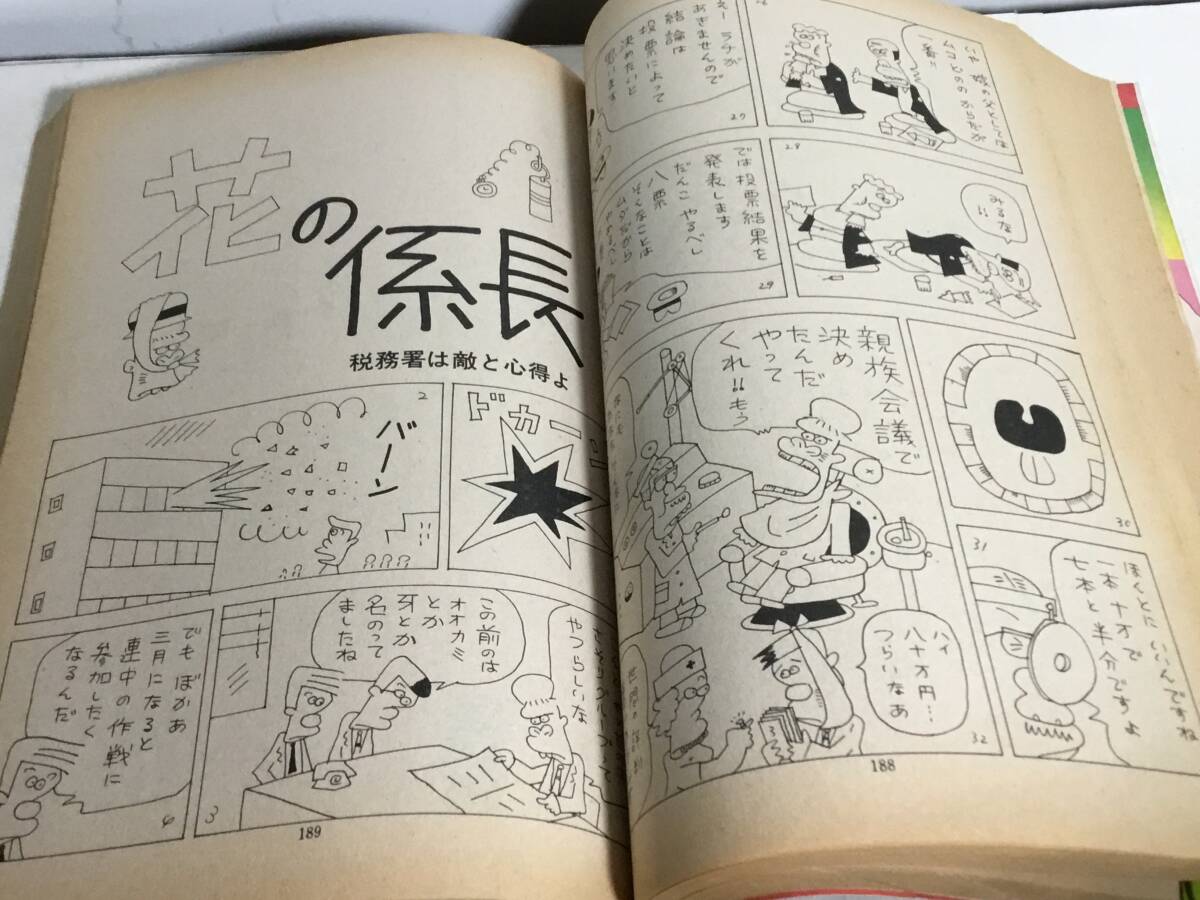 いや 娘の父としては
ムコどののからだが
一番!!
えー ラチが
あきませんので
結論は
投票によって
決めたいと
思います
27
みるな
!!
28
では投票結果を
発表します
だんこ やるべし
八票
29
親族会議で
決め
たんだ
やって
くれ!!もう
30
31
ほんとに いいんですね
一本 十万で
七本と半分ですよ
ハイ
八十万円…
つらいなあ
32
188
花の係長
税務署は敵と心得よ
ドカーン
2
バーン
やつらしいな
この前のは
オオカミ
とか
牙とか
名のって
ましたね
3
でも ぼかあ
三月になると
連中の作戦に
参加したく
なるんだ
189